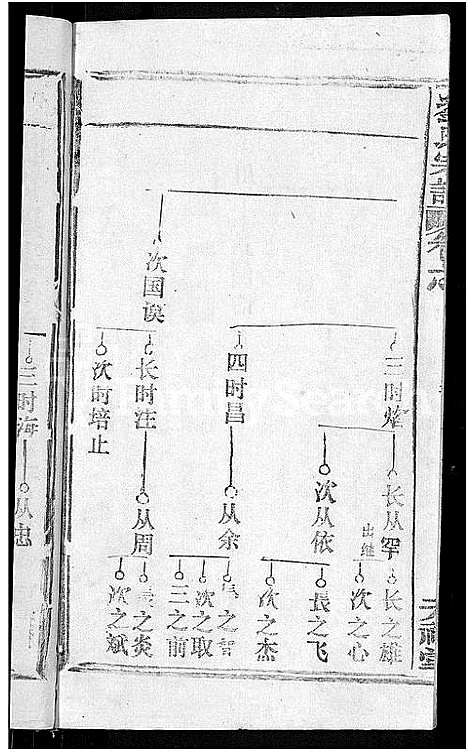 三时烽
长从罕
长之雄
出继
次之心
次从依
长之飞
次之杰
四时昌
从余
次之取
三之前
次国谟
长时注
从周
长之炎
次之斌
次时培止
三时海
从忠